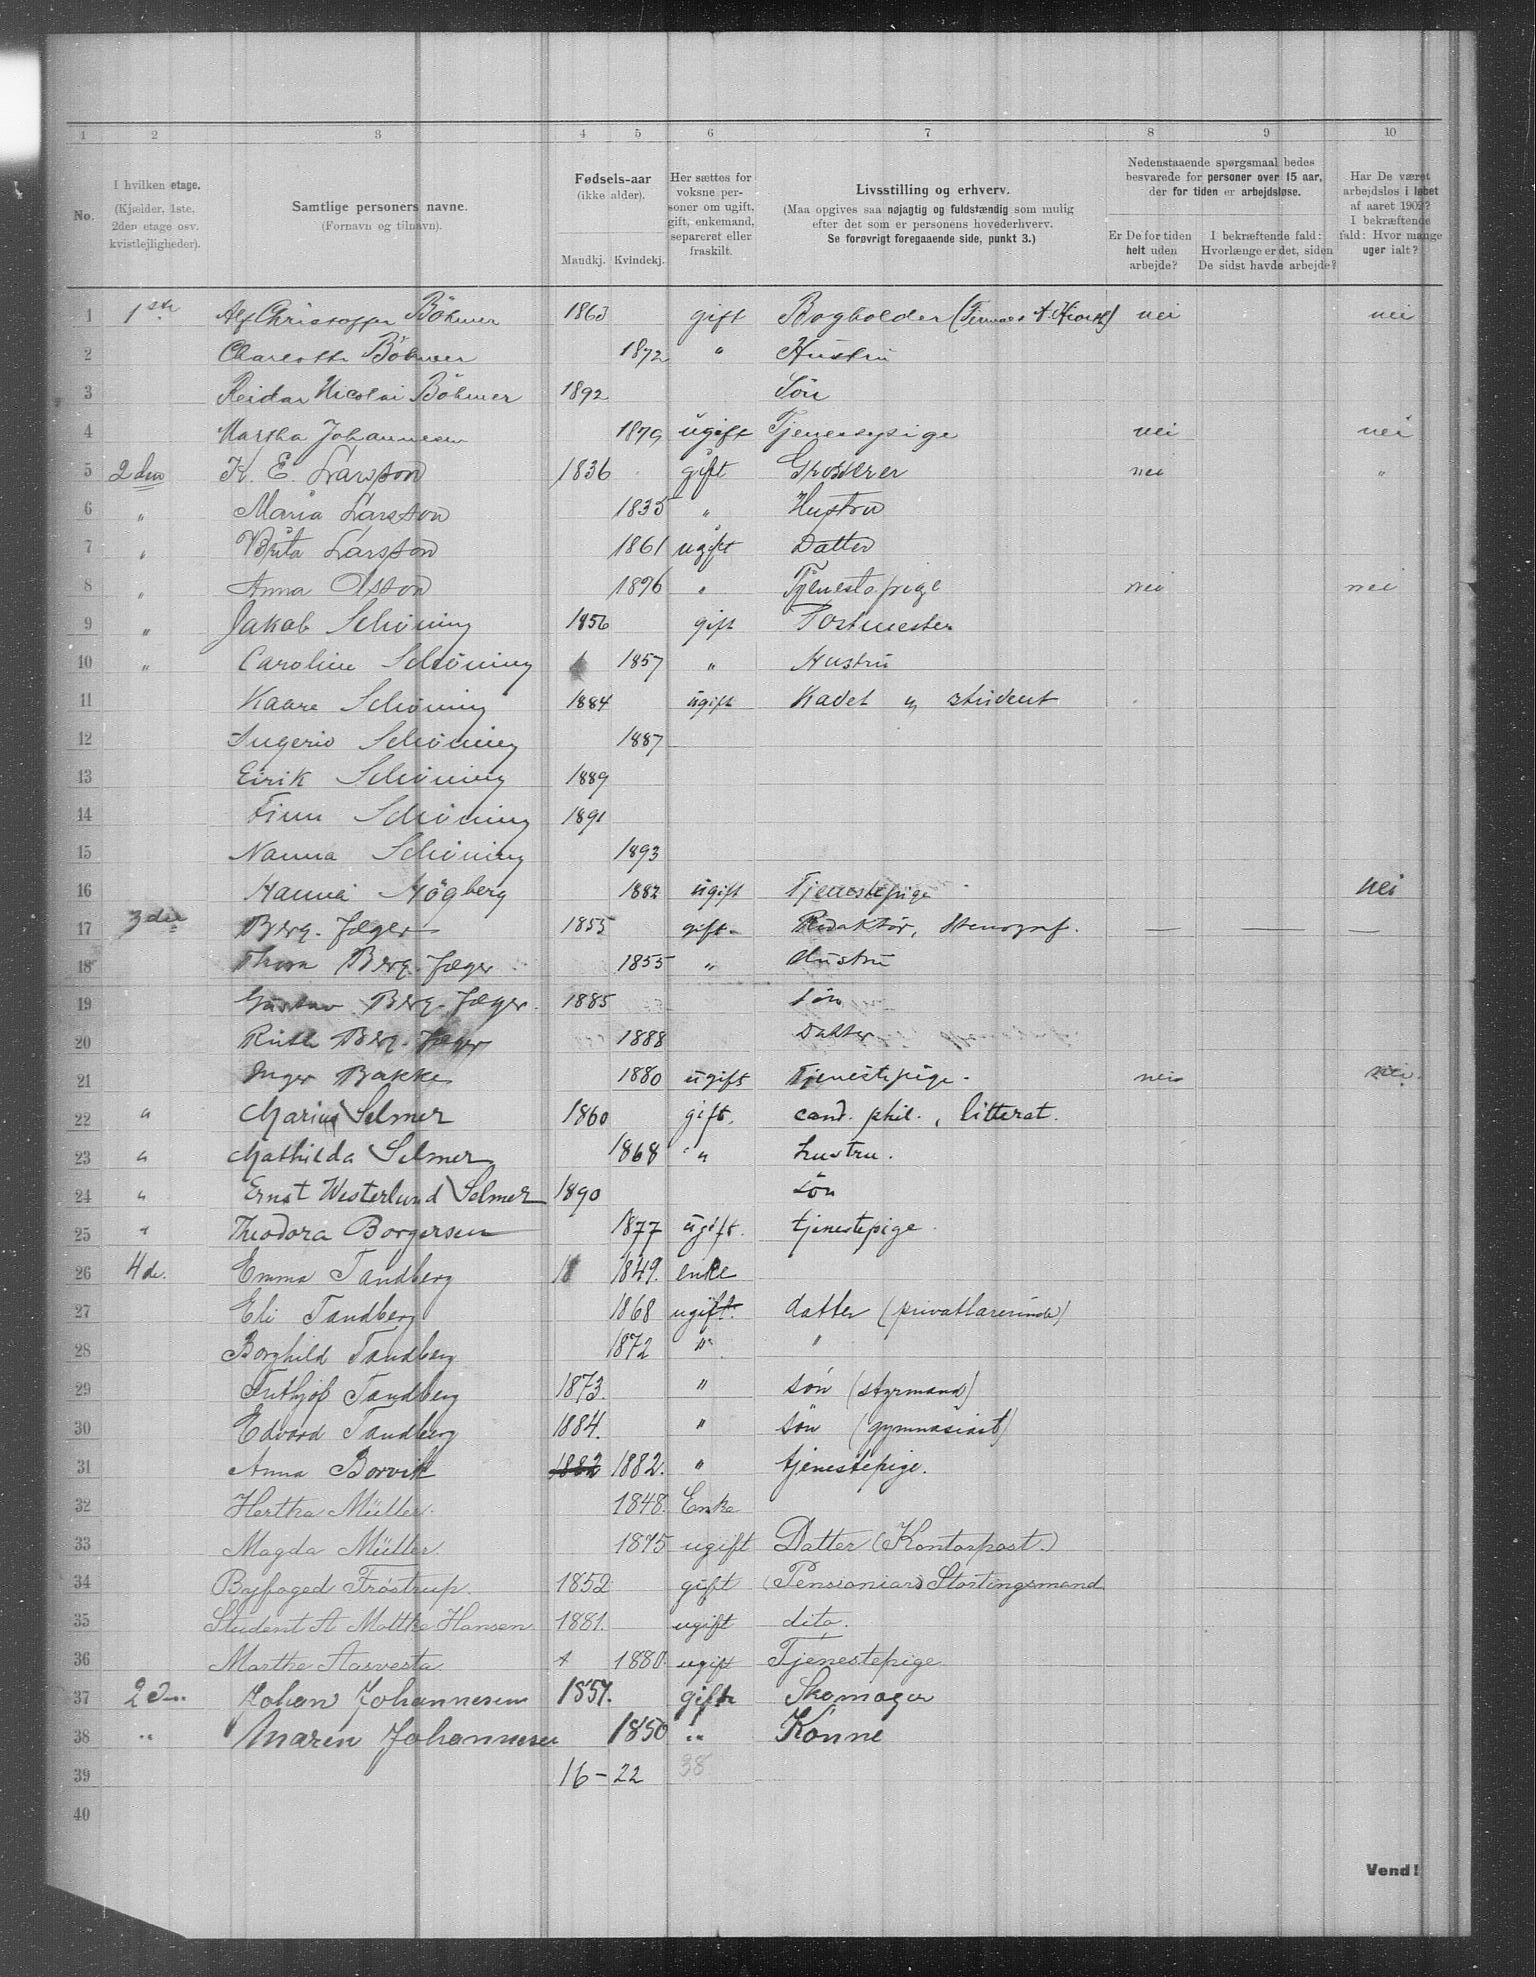 1 2 3 4 5 6 7 8 9 10
No.
I hvilken etage.
(Kjælder, 1ste, 2den etage osv. kvistlejligheder).
Samtlige personers navne.
(Fornavn og tilnavn).
Fødsels-aar
(ikke alder).
Mandkj. Kvindekj.
Her sættes for voksne personer om ugift, gift, enkemand, separeret eller fraskilt.
Livsstilling og erhverv.
(Maa opgives saa nøjagtig og fuldstændig som mulig efter det som er personens hovederhverv.
Se forøvrigt foregaaende side, punkt 3.)
Nedenstaaende spørgsmaal bedes besvarede for personer over 15 aar, der for tiden er arbejdsløse.
Er De for tiden helt uden arbejde?
I bekræftende fald: Hvorlænge er det, siden De sidst havde arbejde?
Har De været arbejdsløs i løbet af aaret 1902? I bekræftende fald: Hvor mange uger ialt?
1 1ste Alf Christoffer Böhmer 1863 gift Bogholder (Firmaet A. Hiorth) nei nei
2 Charlotte Böhmer 1872 " Hustru
3 Reidar Nicolai Böhmer 1892 Søn
4 Martha Johannesen 1879 ugift Tjenestepige nei nei
5 2den K. E. Larsson 1836 gift Grosserer nei "
6 " Maria Larsson 1835 " Hustru
7 " Brita Larsson 1861 ugift Datter
8 " Anna Olsson 1876 " Tjenestepige nei nei
9 " Jakob Schöning 1856 gift Postmester
10 " Caroline Schöning 1857 " Hustru
11 Kaare Schöning 1884 ugift Kadet og student
12 Ingerid Schöning 1887
13 Eirik Schöning 1889
14 Finn Schöning 1891
15 Nanna Schöning 1893
16 Hanna Högberg 1882 ugift Tjenestepige nei
17 3die Berg-Jæger 1855 gift Redaktør, stenograf. — — —
18 Thora Berg-Jæger 1855 " Hustru
19 Gustav Berg-Jæger. 1885 søn
20 Ruth Berg-Jæger 1888 Datter
21 Inger Bakke 1880 ugift Tjenestepige. nei nei.
22 " Marius Selmer 1860 gift. cand. phil., litterat.
23 " Mathilda Selmer 1868 " hustru.
24 " Ernst Westerlund Selmer 1890 søn
25 " Theodora Borgersen 1877 ugift. tjenestepige.
26 4de. Emma Tandberg 1849. enke
27 Eli Tandberg 1868 ugift. datter (privatlærerinde)
28 Borghild Tandberg 1872 " "
29 Frithjof Tandberg 1873. " søn (styrmand)
30 Edvard Tandberg 1884. " søn (gymnasiast)
31 Anna Borvik 1882 1882. " tjenestepige.
32 Hertha Müller. 1848. Enke
33 Magda Müller. 1875 ugift Datter (Kontorpost.)
34 Byfoged Frøstrup 1852 gift (Pensionær) Stortingsmand
35 Student A Moltke Hansen 1881. ugift dito.
36 Marthe Aasvesta 1880. ugift Tjenestepige
37 2den Johan Johannesen 1857. gift Skomager
38 " Maren Johannesen 1850 " Konne
39 16 – 22 38
40
Vend!